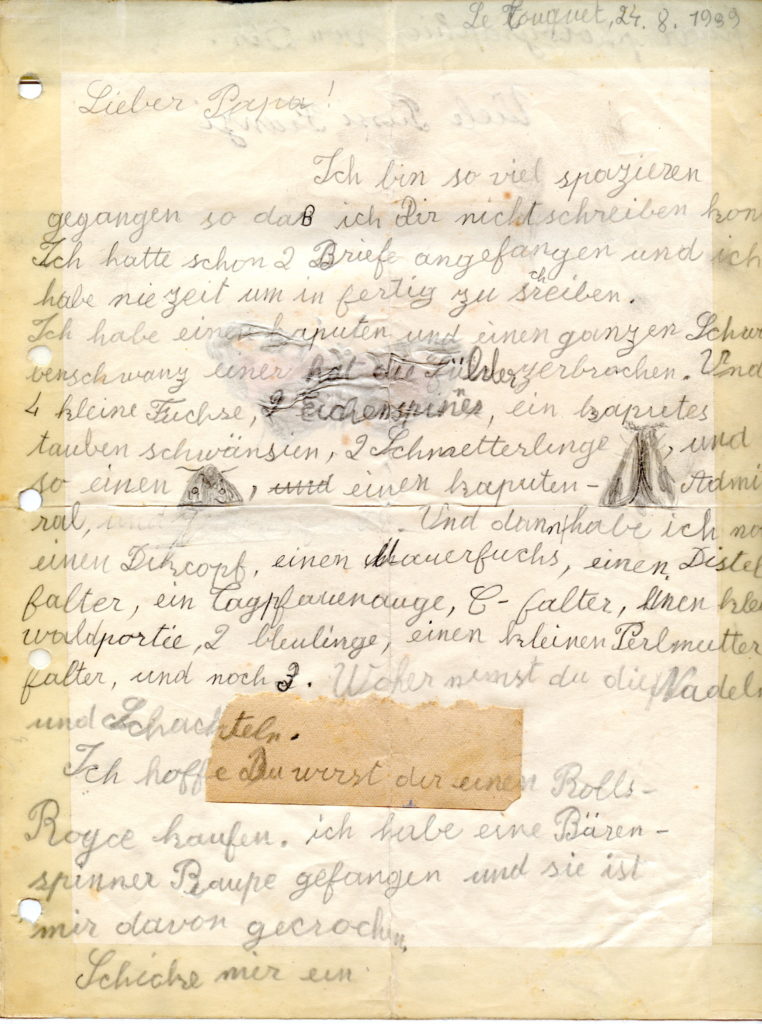 Le Touquet, 24. 8. 1939
Lieber Papa!
Ich bin so viel spazieren
gegangen so daß ich Dir nicht schreiben kon
Ich hatte schon 2 Briefe angefangen und ich
habe nie zeit um in fertig zu schreiben.
Ich habe einen kaputen und einen ganzen Schwa
benschwanz einer hat die Fühler zerbrochen. Und
4 kleine Fuchse, 2 Eichenspiner, ein kaputes
tauben schwänsien, 2 Schmetterlinge , und
so einen , und einen kaputen- Admi
ral, . Und dann habe ich no
einen Dikcopf, einen Mauerfuchs, einen Distel
falter, ein Tagpfauenauge, C- falter, einen klei
waldportie, 2 bleulinge, einen kleinen Perlmutter
falter, und noch 3. Woher nimst du die Nadeln
und Schachteln.
Ich hoffe Du wirst dir einen Rolls-
Royce kaufen. ich habe eine Bären-
spinner Raupe gefangen und sie ist
mir davon gecrochen.
Schicke mir ein